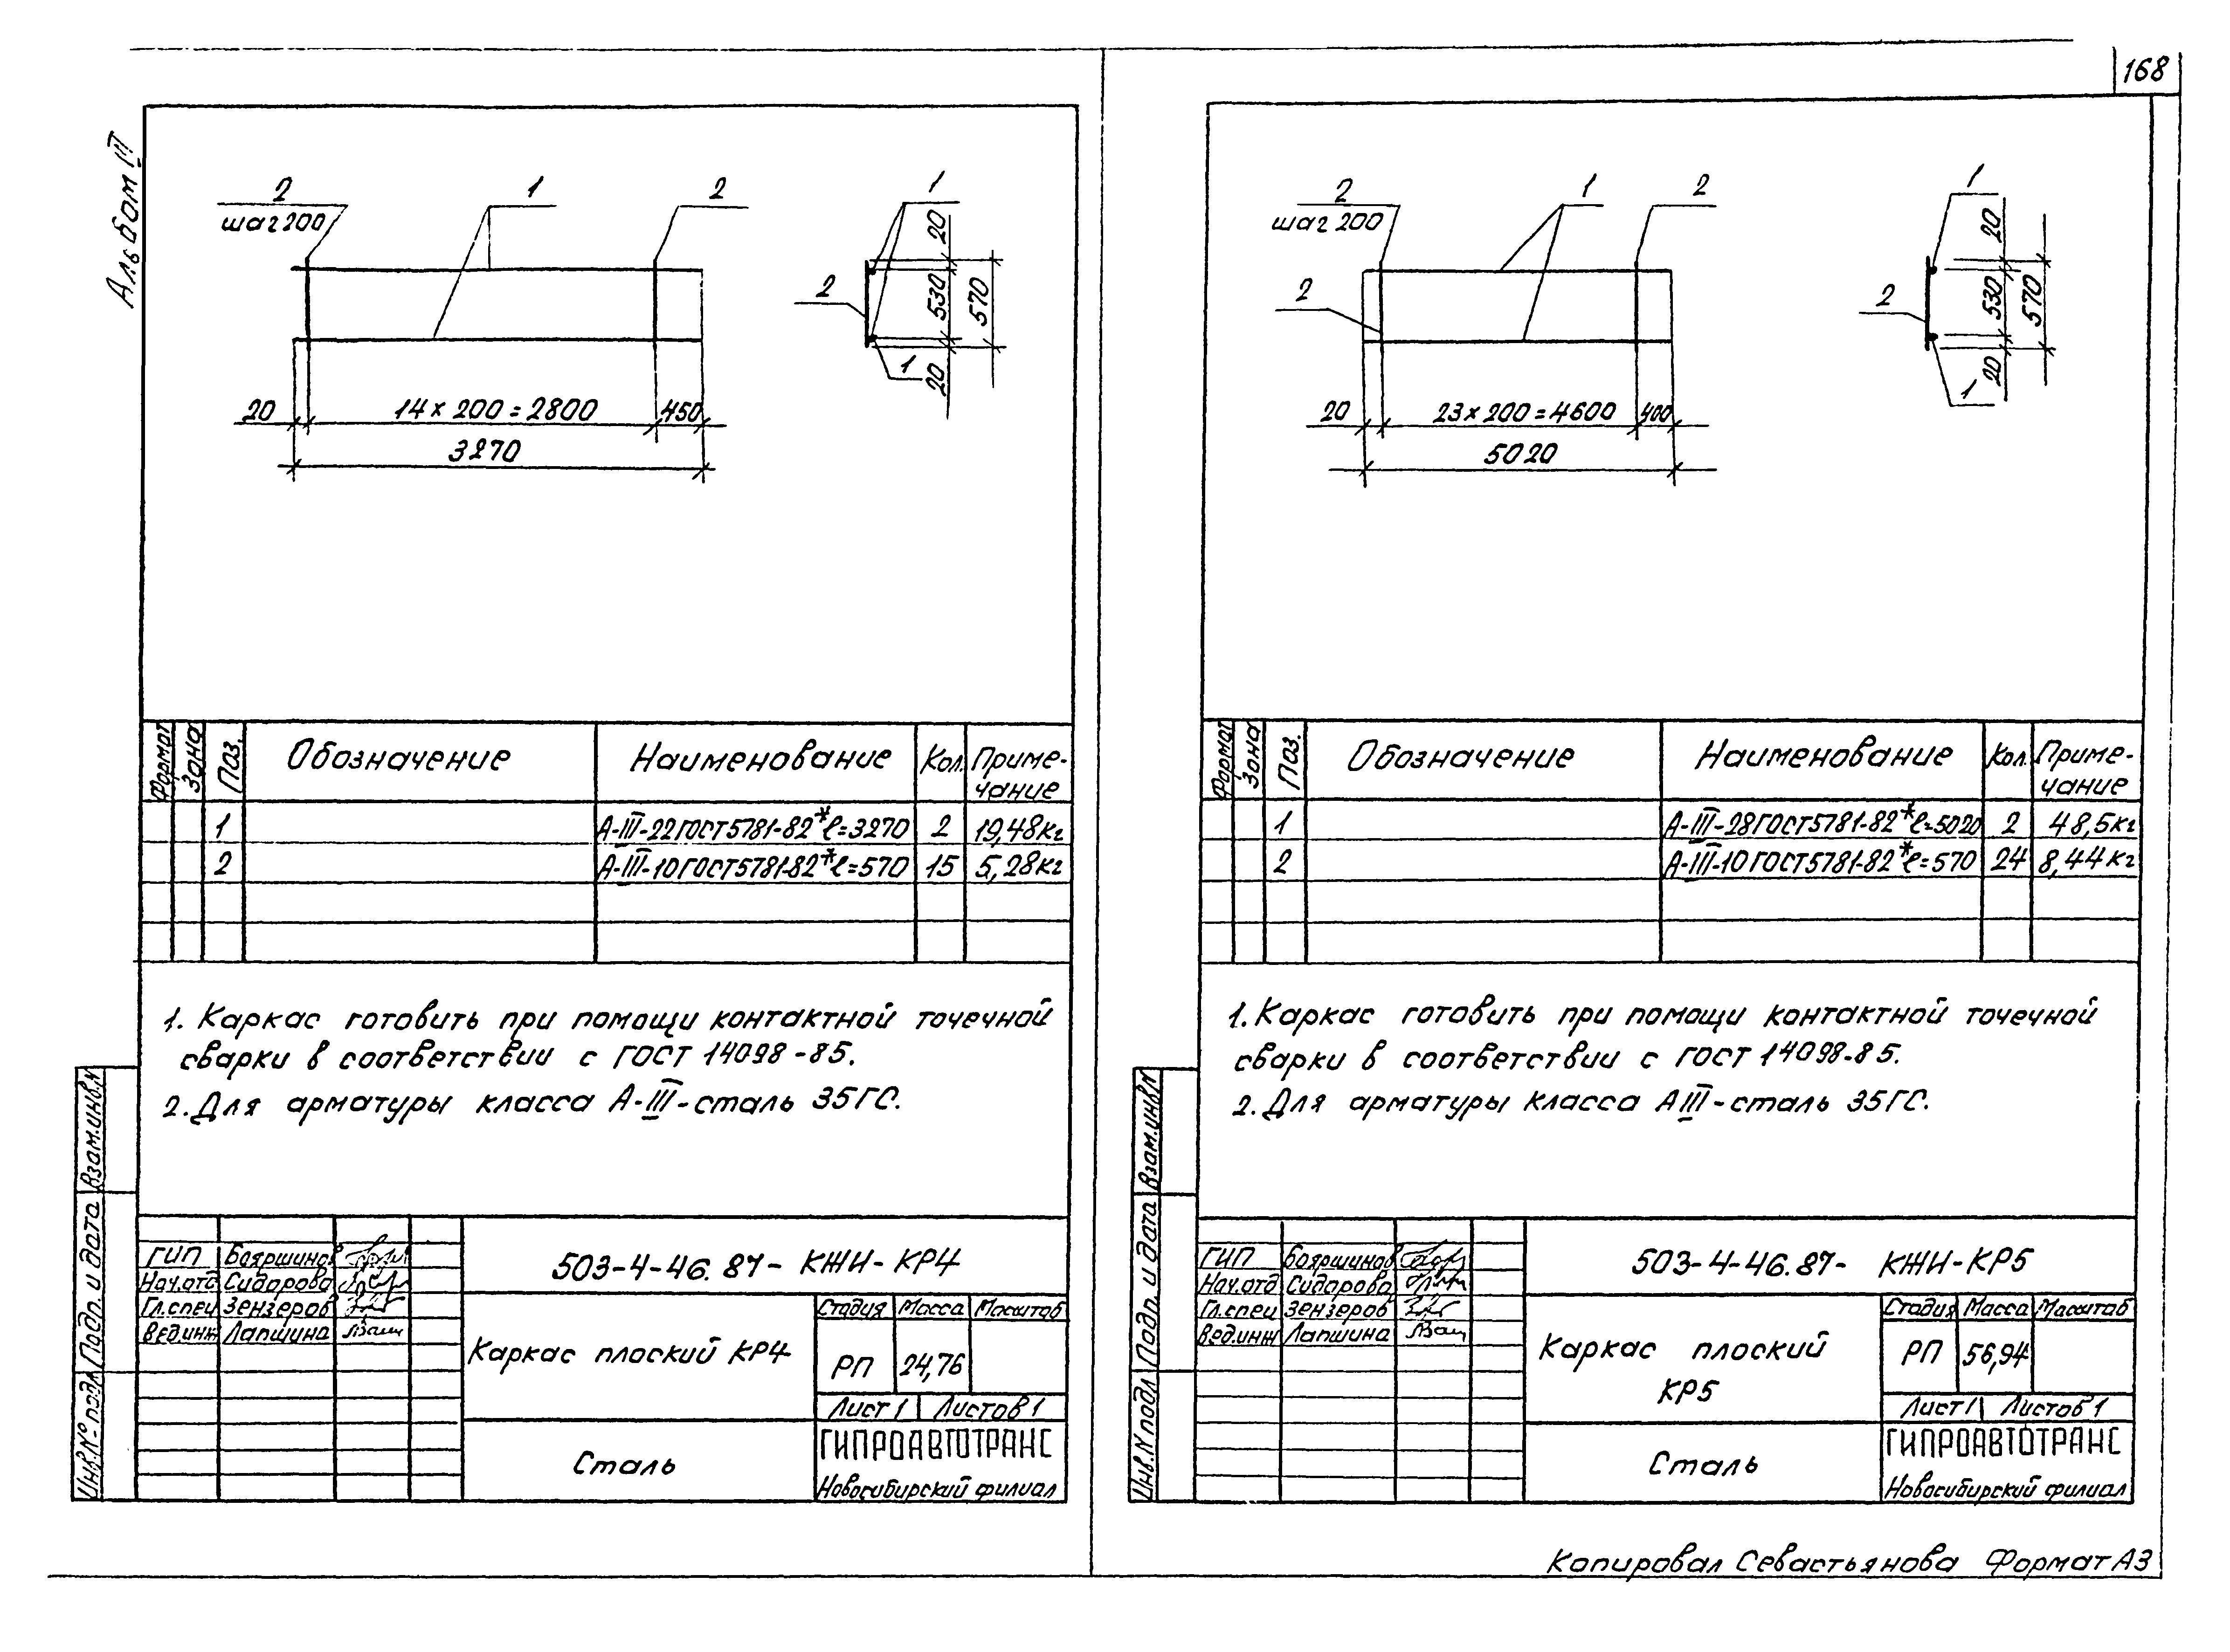 168
Альбом III
2
шаг 200
1
2
1
2
1
20
530
20
570
20
14 × 200 = 2800
450
3270
Формат Зона Поз. Обозначение Наименование Кол. Приме-
чание
1 А-III-22 ГОСТ 5781-82* ℓ=3270 2 19,48кг
2 А-III-10 ГОСТ 5781-82* ℓ=570 15 5,28кг
1. Каркас готовить при помощи контактной точечной
сварки в соответствии с ГОСТ 14098-85.
2. Для арматуры класса А-III-сталь 35ГС.
Взам.инв.N
Подп. и дата
Инв.№ подл
ГИП Бояршинов
Нач.отд Сидорова
Гл.спец Зензеров
Вед.инж Лапшина
503-4-46.87- КЖИ-КР4
Каркас плоский КР4
Стадия Масса Масштаб
РП 24,76
Лист 1 Листов 1
Сталь
ГИПРОАВТОТРАНС
Новосибирский филиал
2
шаг 200
1
2
2
1
2
1
20
530
20
570
20
23 × 200 = 4600
400
5020
Формат Зона Поз. Обозначение Наименование Кол. Приме-
чание
1 А-III-28 ГОСТ 5781-82* ℓ=5020 2 48,5кг
2 А-III-10 ГОСТ 5781-82* ℓ=570 24 8,44кг
1. Каркас готовить при помощи контактной точечной
сварки в соответствии с ГОСТ 14098-85.
2. Для арматуры класса А III-сталь 35ГС.
Взам.инв.N
Подп. и дата
Инв.N подл
ГИП Бояршинов
Нач.отд Сидорова
Гл.спец Зензеров
Вед.инж Лапшина
503-4-46.87- КЖИ-КР5
Каркас плоский
КР5
Стадия Масса Масштаб
РП 56,94
Лист 1 Листов 1
Сталь
ГИПРОАВТОТРАНС
Новосибирский филиал
Копировал Севастьянова Формат А3